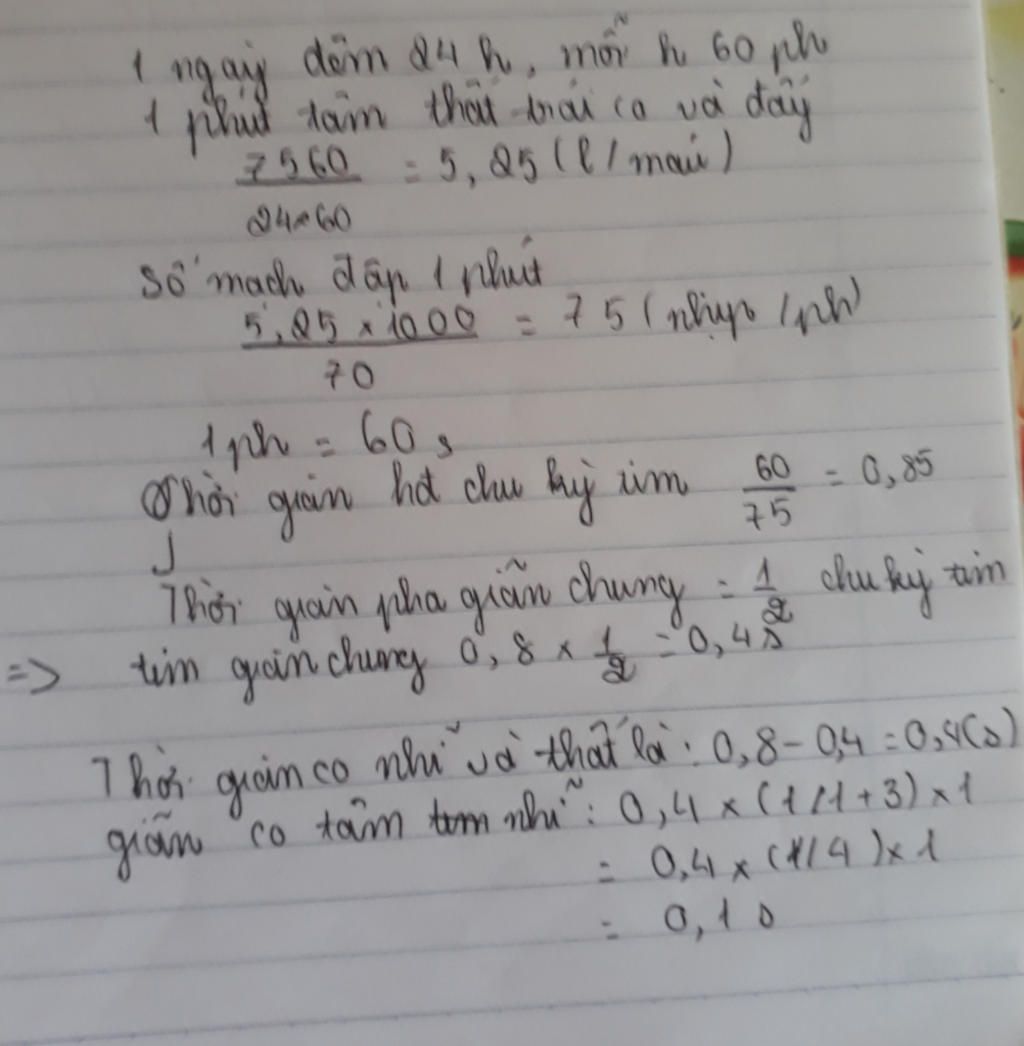 1 ngày đêm 24 h, mỗi h 60 ph
1 phút tâm thất trái co và đẩy
7560 / 24×60 = 5,25 (l / máu)
Số mạch đập 1 phút
5,25 × 1000 / 70 = 75 (nhịp / ph)
1 ph = 60 s
Thời gian hđ chu kỳ tim 60/75 = 0,85
Thời gian pha giãn chung = 1/2 chu kỳ tim
=> tim giãn chung 0,8 × 1/2 = 0,4s
Thời gian co nhĩ và thất là: 0,8 - 0,4 = 0,4(s)
giãn co tâm nhĩ: 0,4 × (1/1+3) × 1
= 0,4 × (1/4) × 1
= 0,1 s